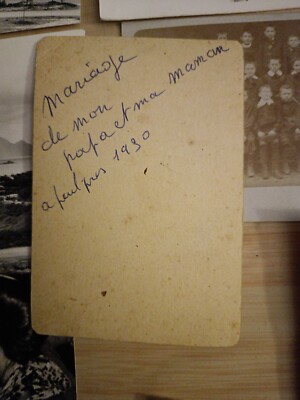 Mariage
de mon
papa et ma maman
a peut pres 1930